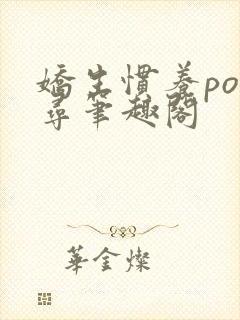 嬌生慣養po
尋筆趣閣
華金燦